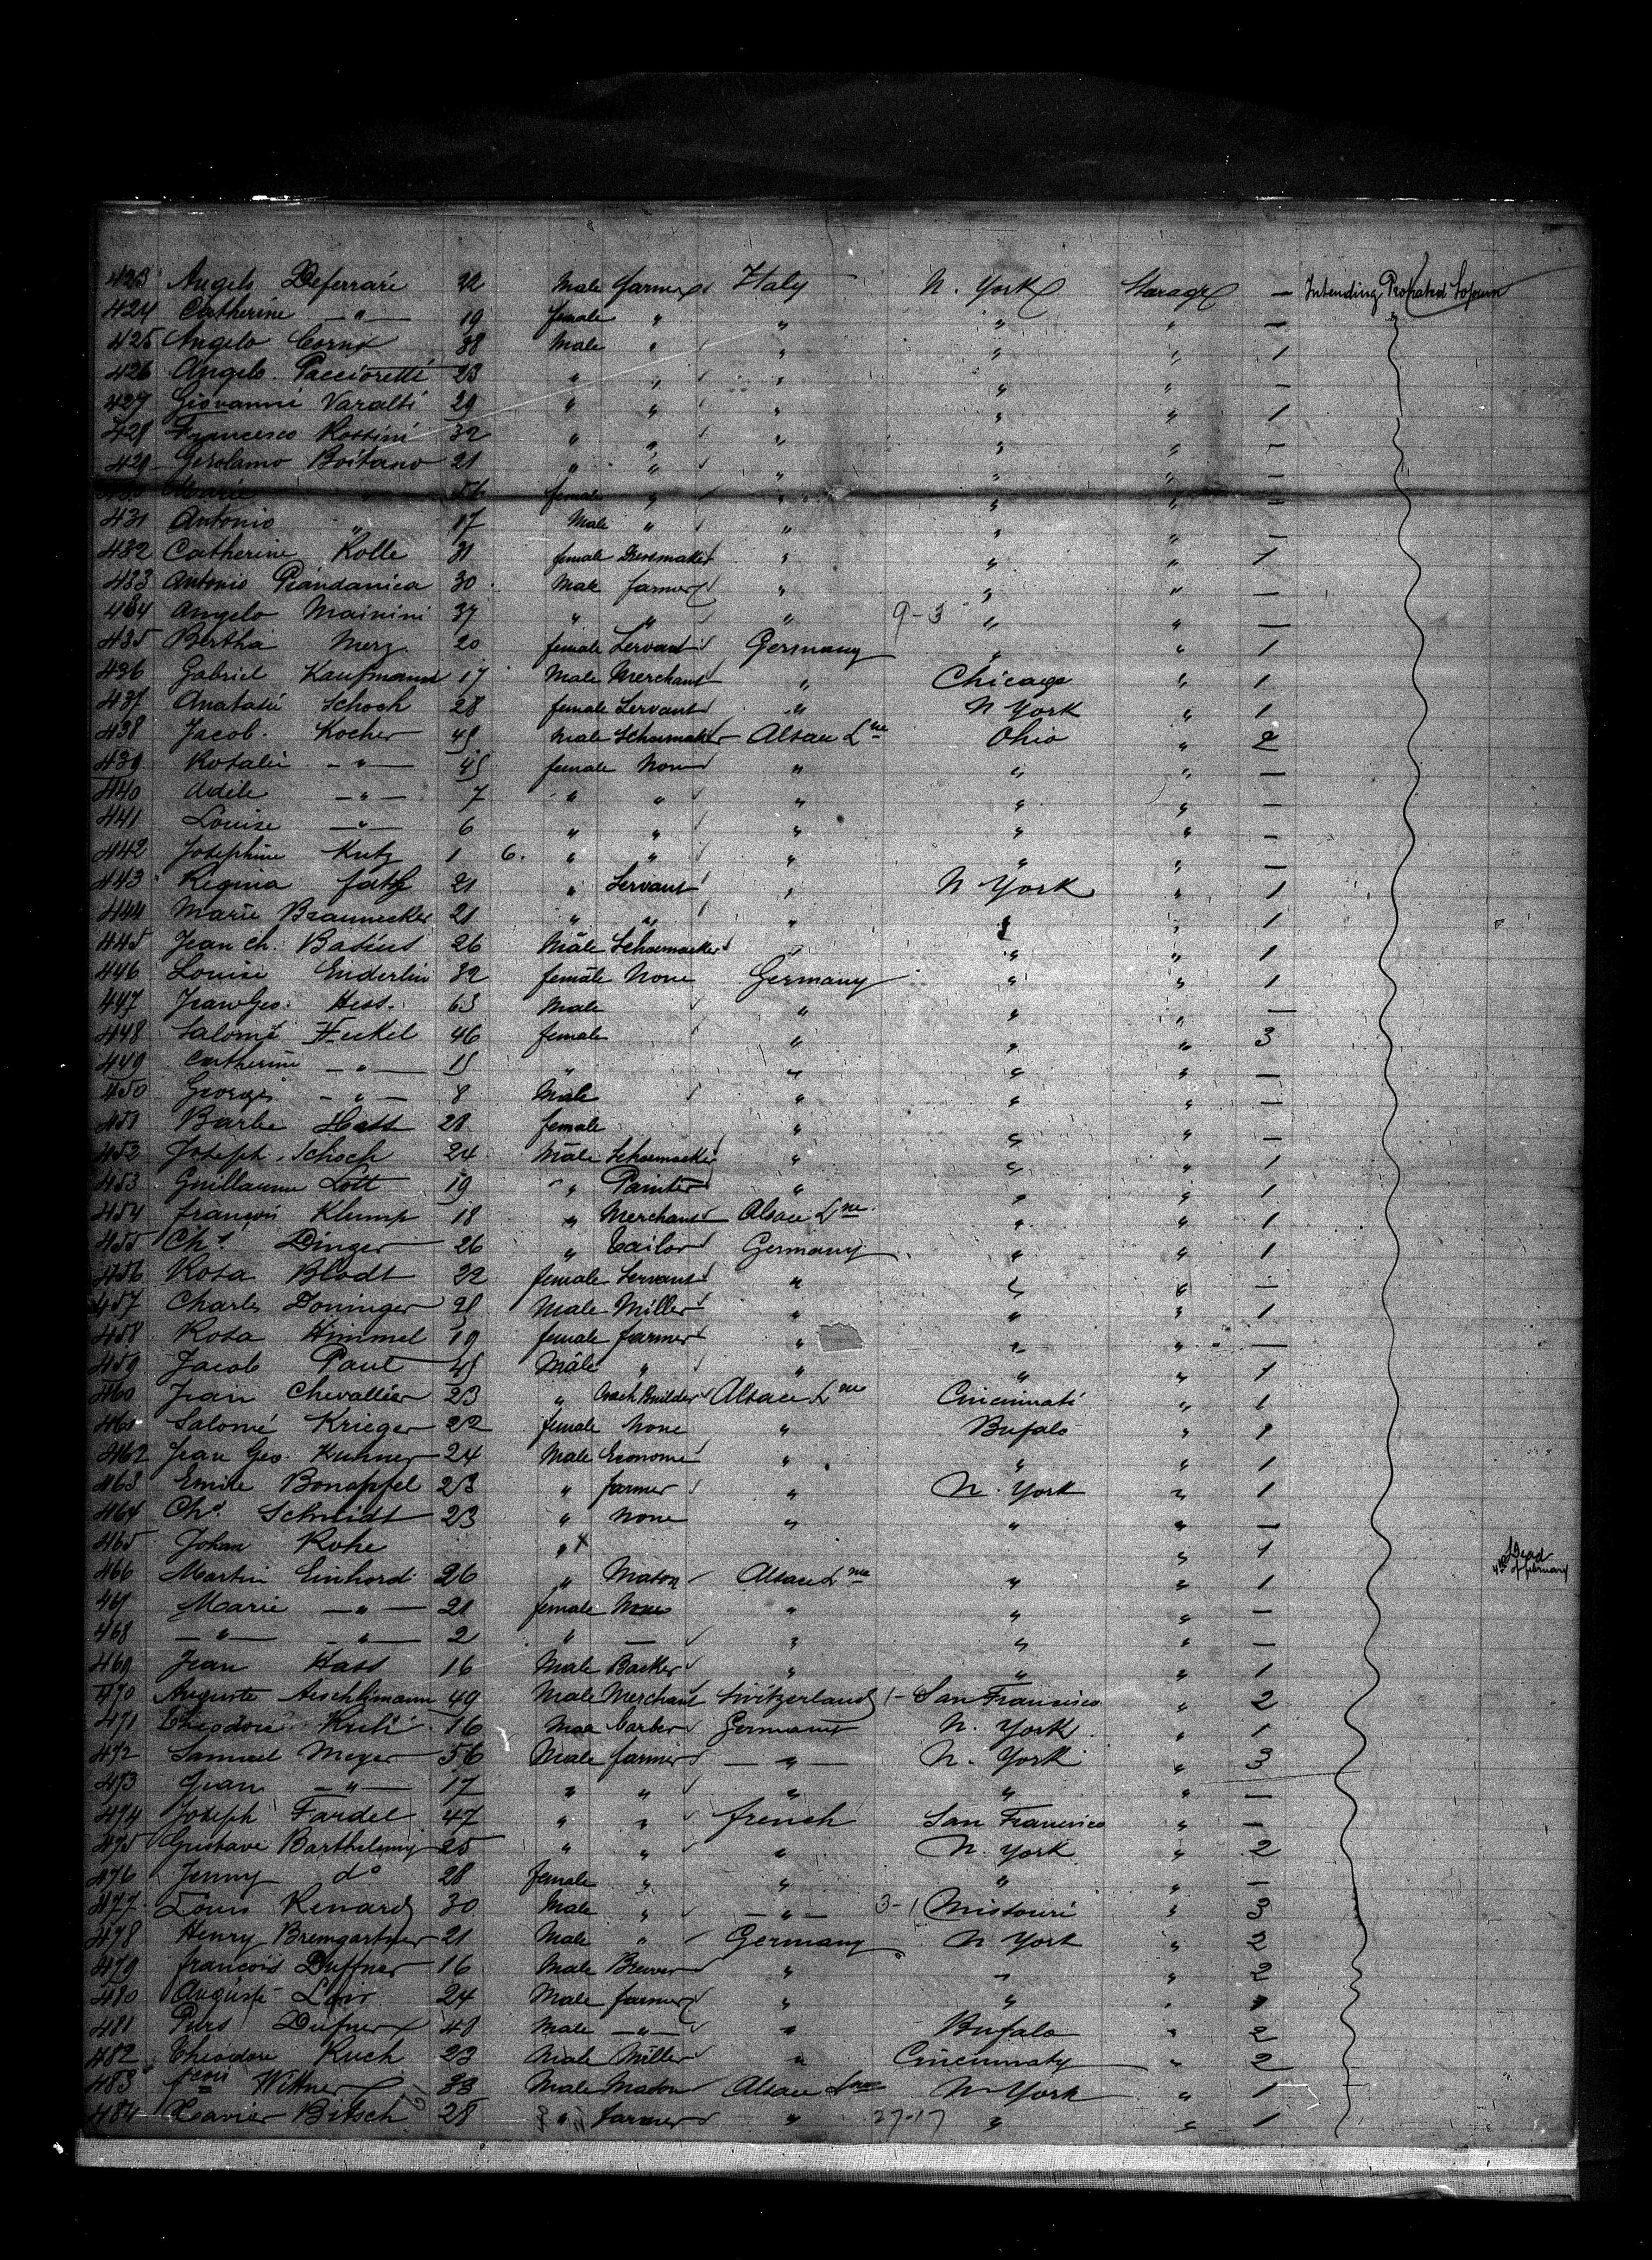 423 Angelo Deferrari 22 Male farmer Italy N. York Starage — Intending
424 Catherine — " — 19 female " " " " —
425 Angelo 38 Male " " " " 1
426 Angelo Paccioretti 23 " " " " " —
427 Giovanni Varalti 29 " " " " " 1
428 Francesco Rossini 32 " " " " " -
429 Gerolamo Boitano 21 " " " " " —
Marie " 56 female " " " " —
431 Antonio " 17 Male " " " " —
432 Catherine Rolle 31 female Dressmaker " " " 1
433 Antonio Piandanica 30 Male farmer " " " —
434 Angelo Mainini 37 " " " 9-3 " " —
435 Bertha Merz 20 female Servant Germany " " 1
436 Gabriel Kaufmann 17 Male Merchant " Chicago " 1
437 Anatasie Schoch 28 female Servant " N York " 1
438 Jacob Kocher 45 Male Schoemaker Alsace Lne Ohio " 2
439 Rosalie — " — 45 female None " " " —
440 Adèle — " — 7 " " " " " —
441 Louise — " — 6 " " " " " —
442 Josephine Kutz 1 6. " " " " " —
443 Regina 21 " Servant " N York " 1
444 Marie Braunecker 21 " " " " " 1
445 Jean Ch. Basius 26 Male Schoemaeker " " " 1
446 Louise Enderlin 32 female None Germany " " 1
447 Jean Geo. Hess 63 Male " " " —
448 Salomé Heckel 46 female " " " 3
449 Catherine — " — 15 " " " " —
450 Georges — " — 8 Male " " " —
451 Barbe 28 female " " " —
452 Joseph Schoch 24 Male Schoemaeker " " " 1
453 Guillaume Lott 19 " Painter " " " 1
454 françois Klump 18 " Merchant Alsace Lne " " 1
455 Chs. Dinger 26 " Tailor Germany " " 1
456 Rosa Blodt 22 female Servant " " " —
457 Charles Doninger 28 Male Miller " " " 1
458 Rosa Himmel 19 female farmer " " " —
459 Jacob Paul 45 Male " " " " 1
460 Jean Chevallier 23 " Coach Builder Alsace Lne Cincinnati " 1
461 Salomé Krieger 22 female None " Bufalo " 1
462 Jean Geo. Kuhner 24 Male Econome " " " 1
463 Emile Bonapfel 23 " farmer " N. York " 1
464 Chs. Schmidt 23 " None " " " —
465 Johan Rohe " x " 1 Dead
466 Martin Einhord 26 " Mason Alsace Lne " " 1 4th of february
467 Marie — " — 21 female None " " " —
468 — " — — " — 2 " — " " " —
469 Jean Hass 16 Male Backer " " " 1
470 Auguste Aeschlimann 49 Male Merchant Switzerland 1- San Francisco " 2
471 Theodore 16 Germany N. York " 1
472 Samuel Meyer 56 Male farmer — " — N. York " 3
473 Jean — " — 17 " " " " " —
474 Joseph Fardel 47 " " french San Francisco " —
475 Gustave Barthelemy 25 " " " N. York " 2
476 Jenny do 28 female " " " " —
477 Louis Renard 30 Male " — " — 3-1 Missouri " 3
478 Henry Bremgartner 21 Male " Germany N York " 2
479 françois Duffner 16 Male Brewer " " " 2
480 Auguste 24 Male farmer " " "
481 Dufner 48 Male — " — " Bufalo " 2
482 Theodore Kuch 23 Male Miller " Cincinnaty " 2
483 fcois Wittner 33 Male Mason Alsace Lne N York " 1
484 Xavier Bitsch 28 " farmer " 27-17 " " 1